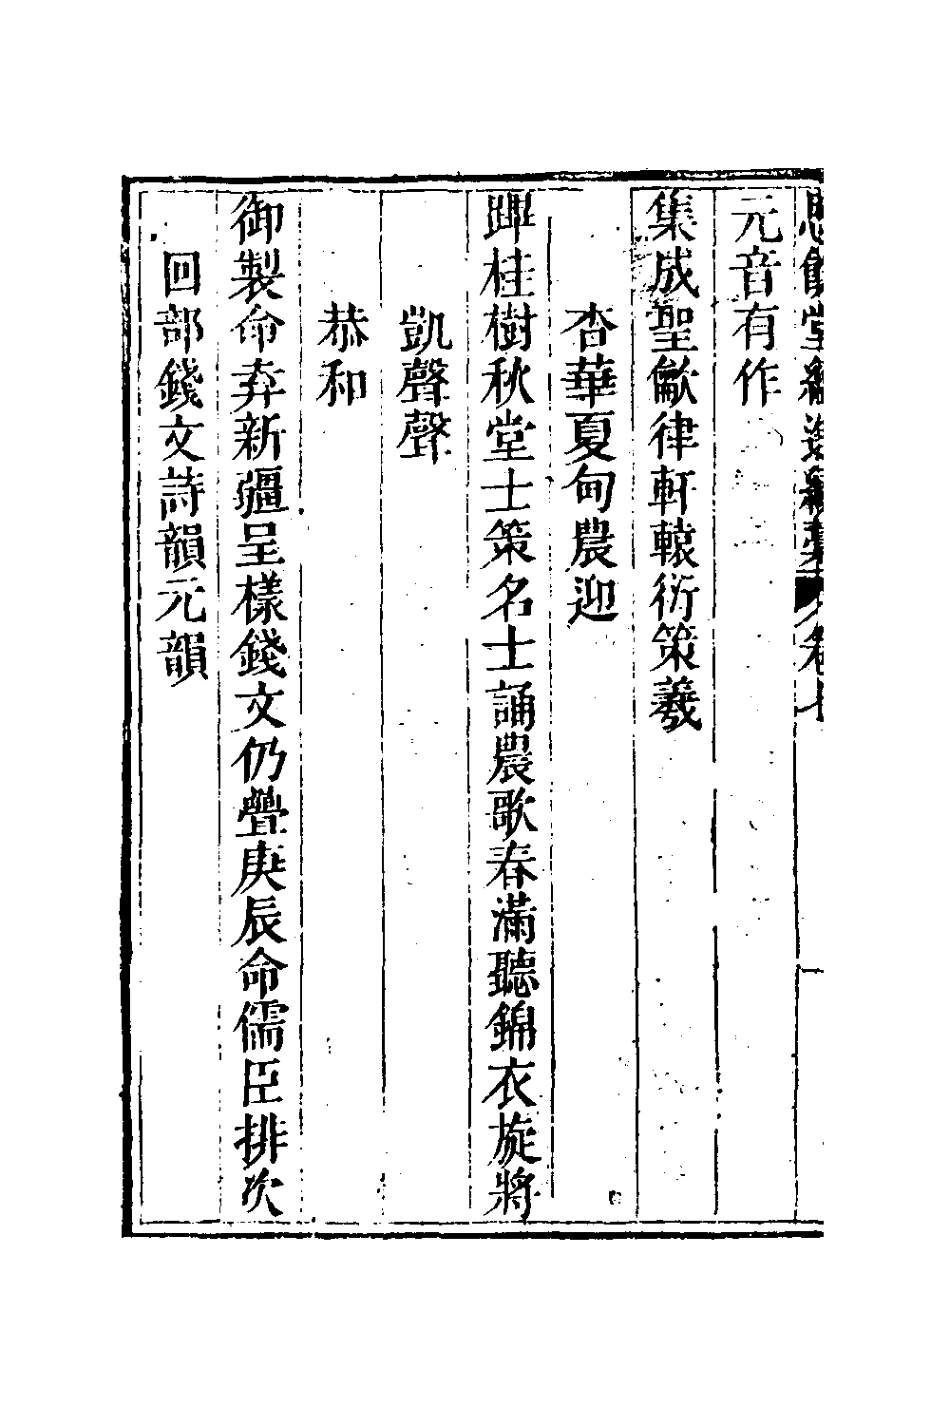 恩餘堂經進續藁 卷七
元音有作
集成聖歈律軒轅衍策羲
杏華夏甸農迎
蹕桂樹秋堂士策名士誦農歌春滿聽錦衣旋將
凱聲聲
恭和
御製命弆新疆呈樣錢文仍疊庚辰命儒臣排次
回部錢文詩韻元韻